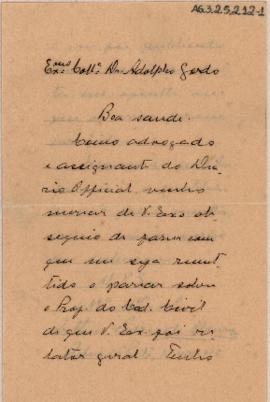 AG.3.25.212-1
Exmo. Coll.ª Dr. Adolpho Gordo
Boa saude.
Como advogado
e assignante do Dia
rio Official, venho
merecer de V. Exa. ob
sequio de fazer com
que me seja remet
tido o parecer sobre
o Proj. do Cod. Civil
de que V. Exa. foi re
lator geral. Tenho